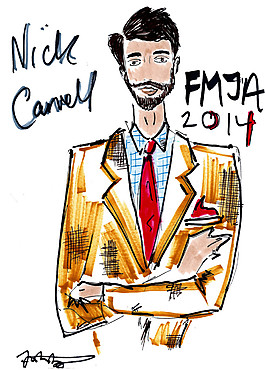 Nick
Carvell
FMJA
2014